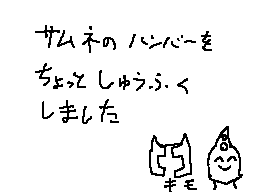 サムネのハンバーを
ちょっとしゅうふく
しました
キモ